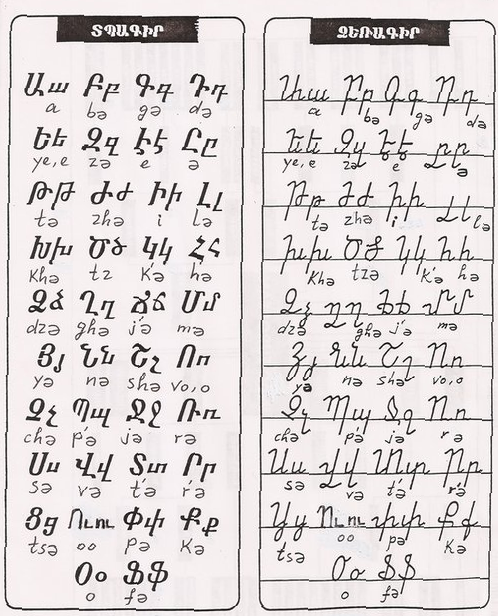 ՏՊԱԳԻՐ
Աա Բբ Գգ Դդ
a bə gə də
Եե Զզ Էէ Ըը
ye,e zə e ə
Թթ Ժժ Իի Լլ
tə zhə i lə
Խխ Ծծ Կկ Հհ
Khə tz K'ə hə
Ձձ Ղղ Ճճ Մմ
dzə ghə j'ə mə
Յյ Նն Շշ Ոո
yə nə shə vo,o
Չչ Պպ Ջջ Ռռ
chə p'ə jə rə
Սս Վվ Տտ Րր
sə və t'ə r'ə
Ցց Ուու Փփ Քք
tsə oo pə Kə
Օօ Ֆֆ
o fə
ՁԵՌԱԳԻՐ
Աա Բբ Գգ Դդ
a bə gə də
Եե Զզ Էէ Ըը
ye,e zə e ə
Թթ Ժժ Իի Լլ
tə zhə i lə
Խխ Ծծ Կկ Հհ
Khə tzə K'ə hə
Ձձ Ղղ Ճճ Մմ
dzə ghə j'ə mə
Յյ Նն Շշ Ոո
yə nə shə vo,o
Չչ Պպ Ջջ Ռռ
chə p'ə jə rə
Սս Վվ Տտ Րր
sə və t'ə r'ə
Ցց Ուու Փփ Քք
tsə oo pə Kə
Օօ Ֆֆ
o fə